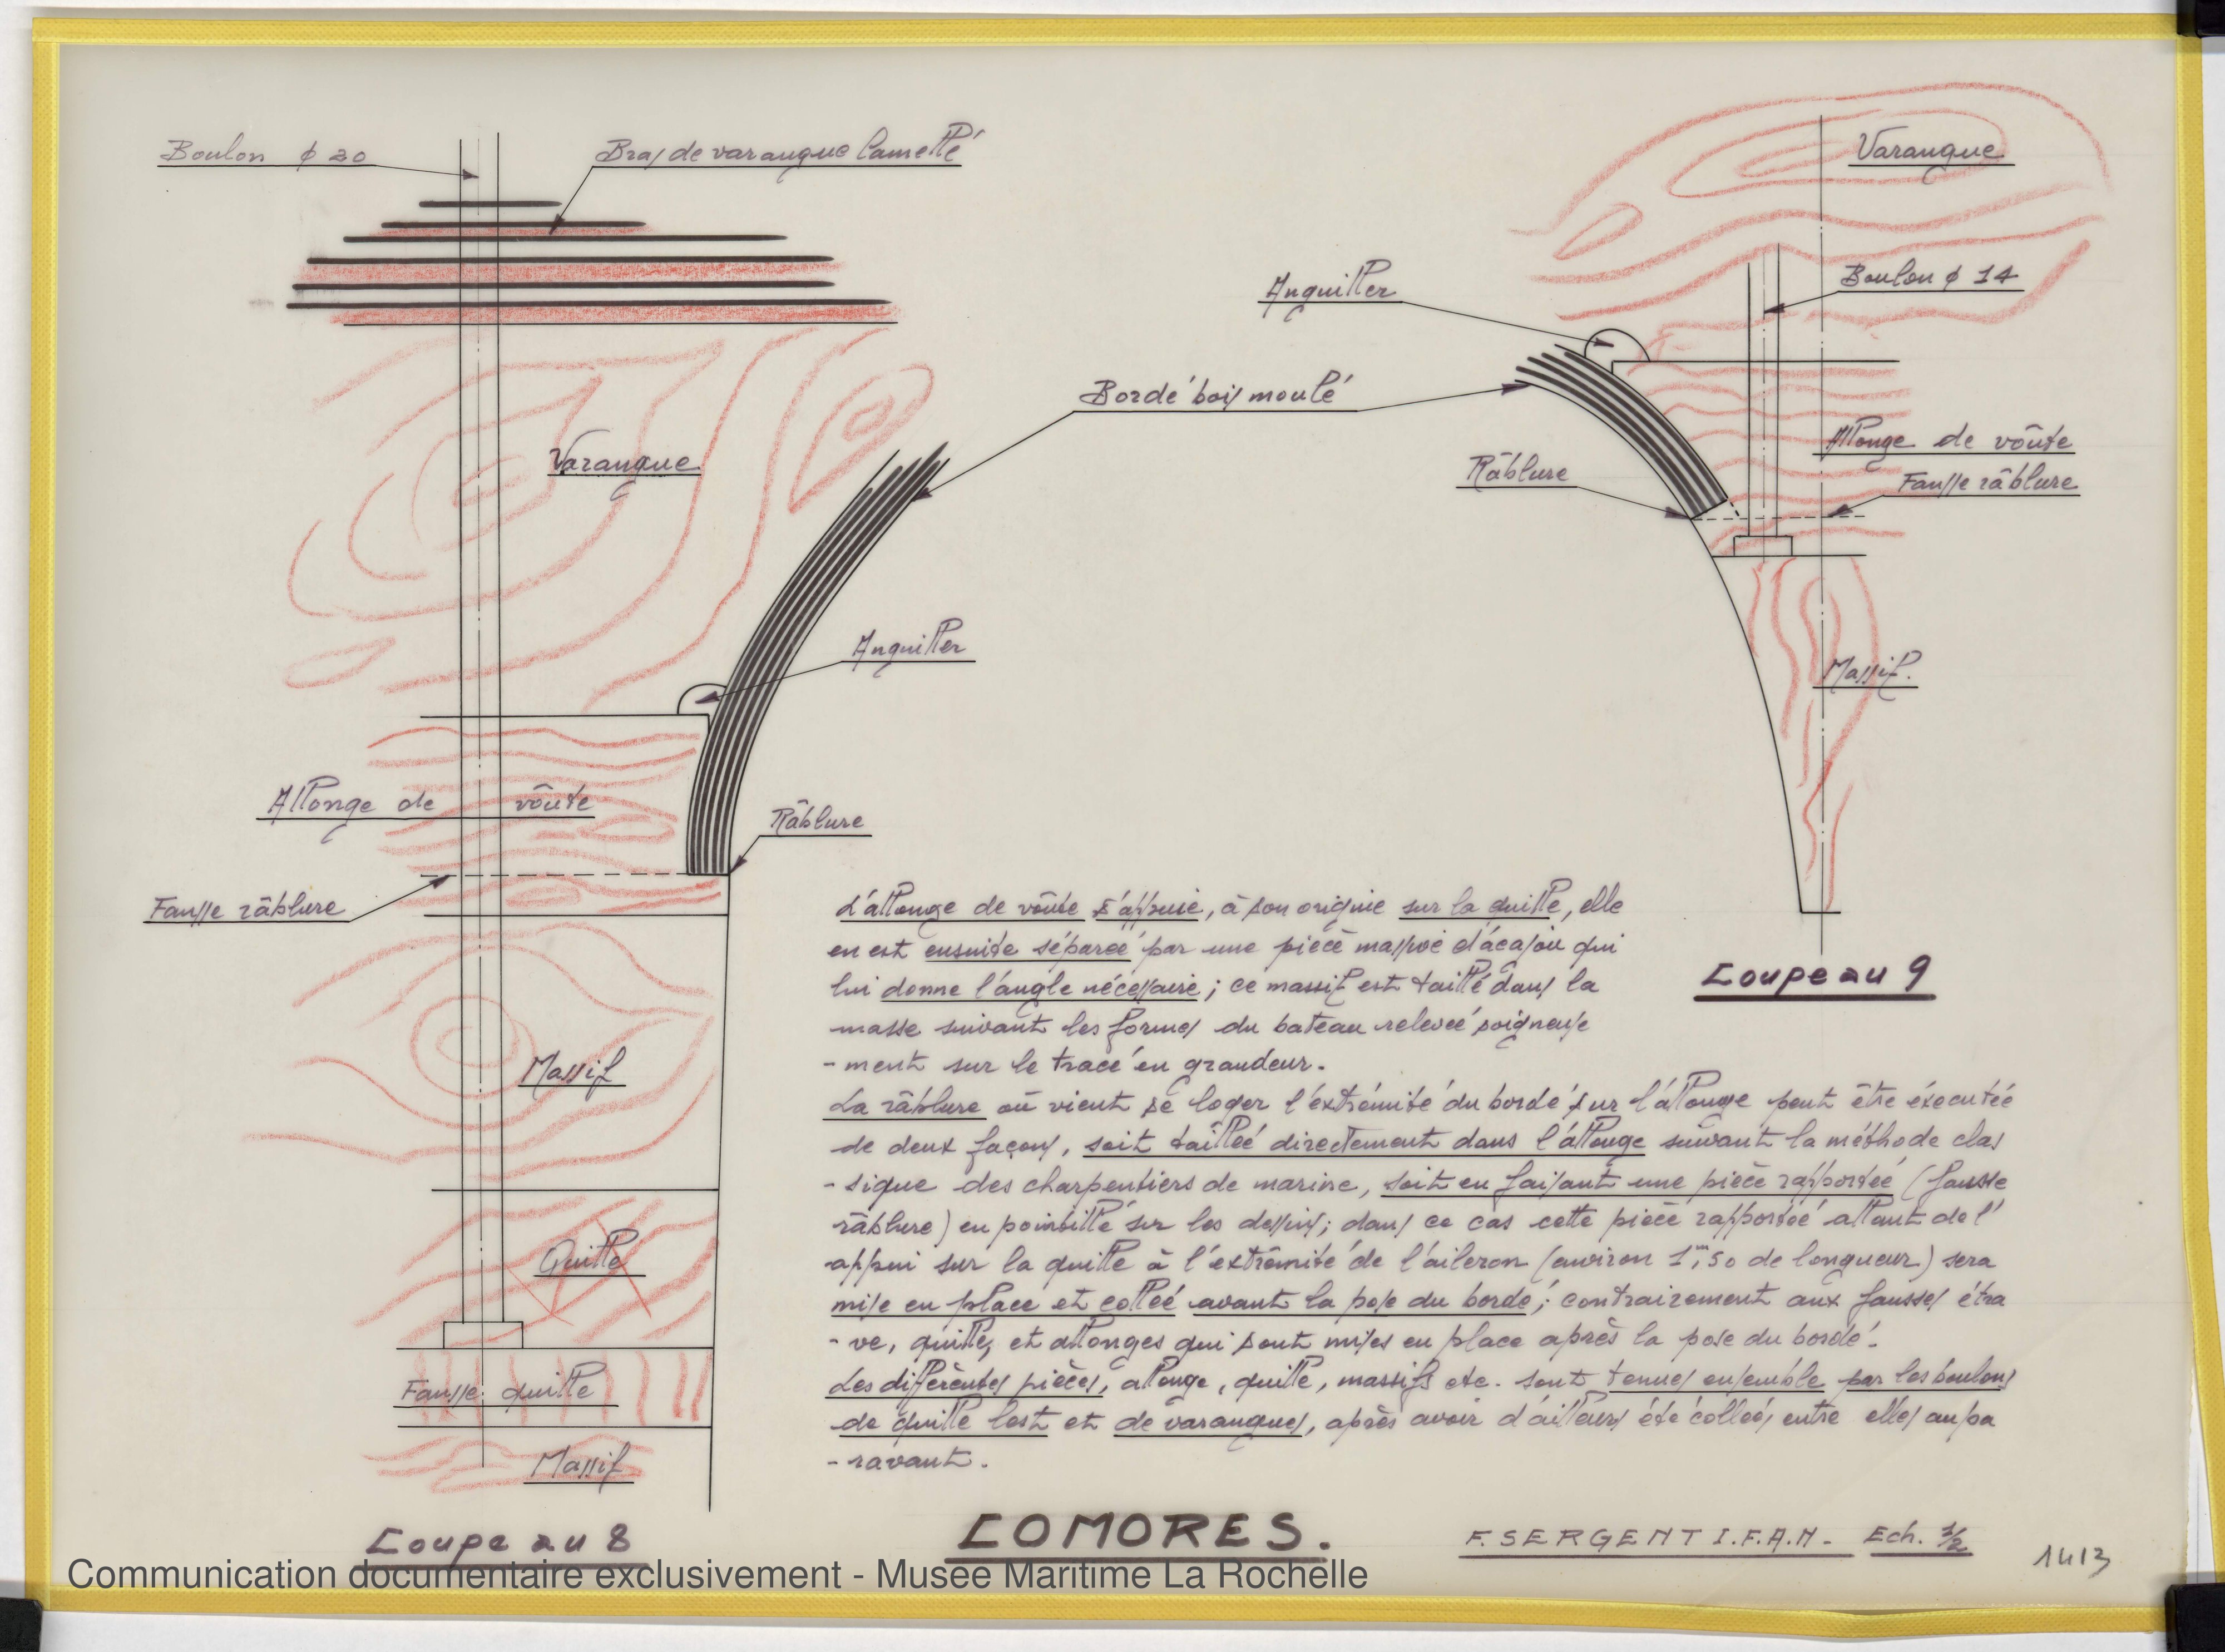 Boulon ϕ 20
Bras de varangue lamellé
Varangue
Boulon ϕ 14
Anguiller
Bordé bois moulé
Allonge de voûte
Râblure
Fausse râblure
Varangue
Anguiller
Massif.
Allonge de voûte
Râblure
Fausse râblure
L'allonge de voûte s'appuie, à son origine sur la quille, elle
en est ensuite séparée par une pièce massive d'acajou qui
lui donne l'angle nécessaire ; ce massif est taillé dans la
masse suivant les formes du bateau relevée soigneuse
-ment sur le tracé en grandeur.
Coupe au 9
La râblure où vient se loger l'éxtrémité du bordé sur l'allonge peut être éxecutée
de deux façons, soit taillée directement dans l'allonge suivant la méthode clas
-sique des charpentiers de marine, soit en faisant une pièce rapportée (fausse
râblure) en pointillé sur les dessins ; dans ce cas cette pièce rapportée allant de l'
appui sur la quille à l'extrêmité de l'aileron (environ 1m,50 de longueur) sera
mise en place et collée avant la pose du bordé ; contrairement aux fausses étra
-ve, quille, et allonges qui sont mises en place après la pose du bordé.
Les différentes pièces, allonge, quille, massifs etc. sont tenues ensemble par les boulons
de quille lest et de varangues, après avoir d'ailleurs été collées entre elles aupa
-ravant.
Massif
Quille
Fausse quille
Massif
Coupe au 8
COMORES.
F. SERGENT I.F.A.N. Ech. 1/2
1413
Communication documentaire exclusivement - Musée Maritime La Rochelle